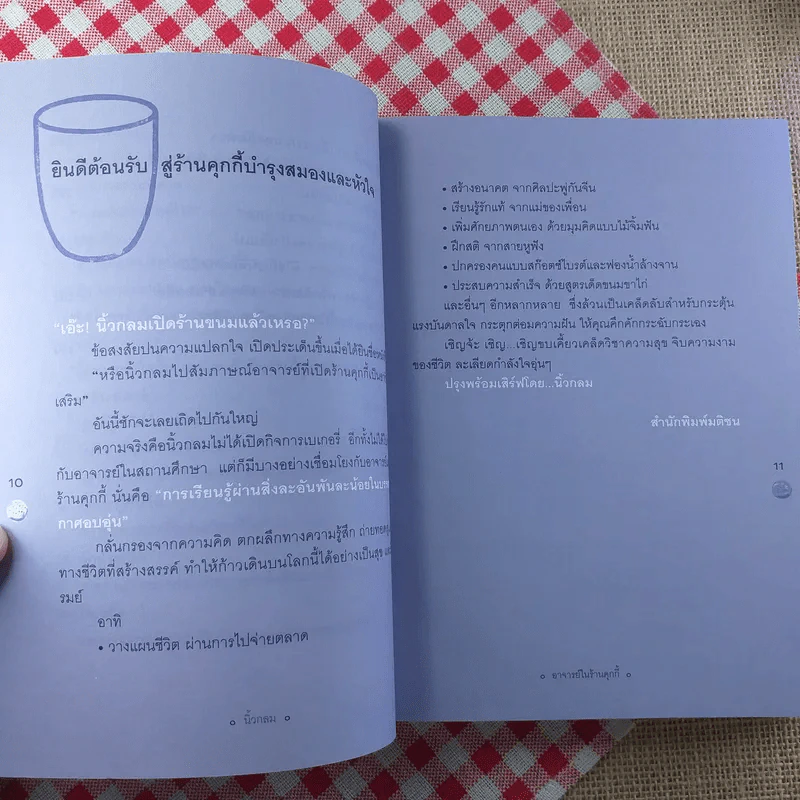 ยินดีต้อนรับ สู่ร้านคุกกี้บำรุงสมองและหัวใจ
“เอ๊ะ! นิ้วกลมเปิดร้านขนมแล้วเหรอ?”
ข้อสงสัยปนความแปลกใจ เปิดประเด็นขึ้นเมื่อได้ยิน
“หรือนิ้วกลมไปสัมภาษณ์อาจารย์ที่เปิดร้านคุกกี้เป็น
เสริม”
อันนี้ชักจะเลยเถิดไปกันใหญ่
ความจริงคือนิ้วกลมไม่ได้เปิดกิจการเบเกอรี่ อีกทั้งไม่ได้
กับอาจารย์ในสถานศึกษา แต่ก็มีบางอย่างเชื่อมโยงกับอาจารย์
ร้านคุกกี้ นั่นคือ “การเรียนรู้ผ่านสิ่งละอันพันละน้อยใน
กาศอบอุ่น”
กลั่นกรองจากความคิด ตกผลึกทางความรู้สึก
ทางชีวิตที่สร้างสรรค์ ทำให้ก้าวเดินบนโลกนี้ได้อย่างเป็นสุข
รมย์
อาทิ
• วางแผนชีวิต ผ่านการไปจ่ายตลาด
10
นิ้วกลม
• สร้างอนาคต จากศิลปะพู่กันจีน
• เรียนรู้รักแท้ จากแม่ของเพื่อน
• เพิ่มศักยภาพตนเอง ด้วยมุมคิดแบบไม้จิ้มฟัน
• ฝึกสติ จากสายหูฟัง
• ปกครองคนแบบสก๊อตซ์ไบรต์และฟองน้ำล้างจาน
• ประสบความสำเร็จ ด้วยสูตรเด็ดขนมขาไก่
และอื่นๆ อีกหลากหลาย ซึ่งล้วนเป็นเคล็ดลับสำหรับกระตุ้น
แรงบันดาลใจ กระตุกต่อมความฝัน ให้คุณคึกคักกระฉับกระเฉง
เชิญจ้ะ เชิญ...เชิญขบเคี้ยวเคล็ดวิชาความสุข จิบความงาม
ของชีวิต ละเลียดกำลังใจอุ่นๆ
ปรุงพร้อมเสิร์ฟโดย...นิ้วกลม
สำนักพิมพ์มติชน
11
อาจารย์ในร้านคุกกี้